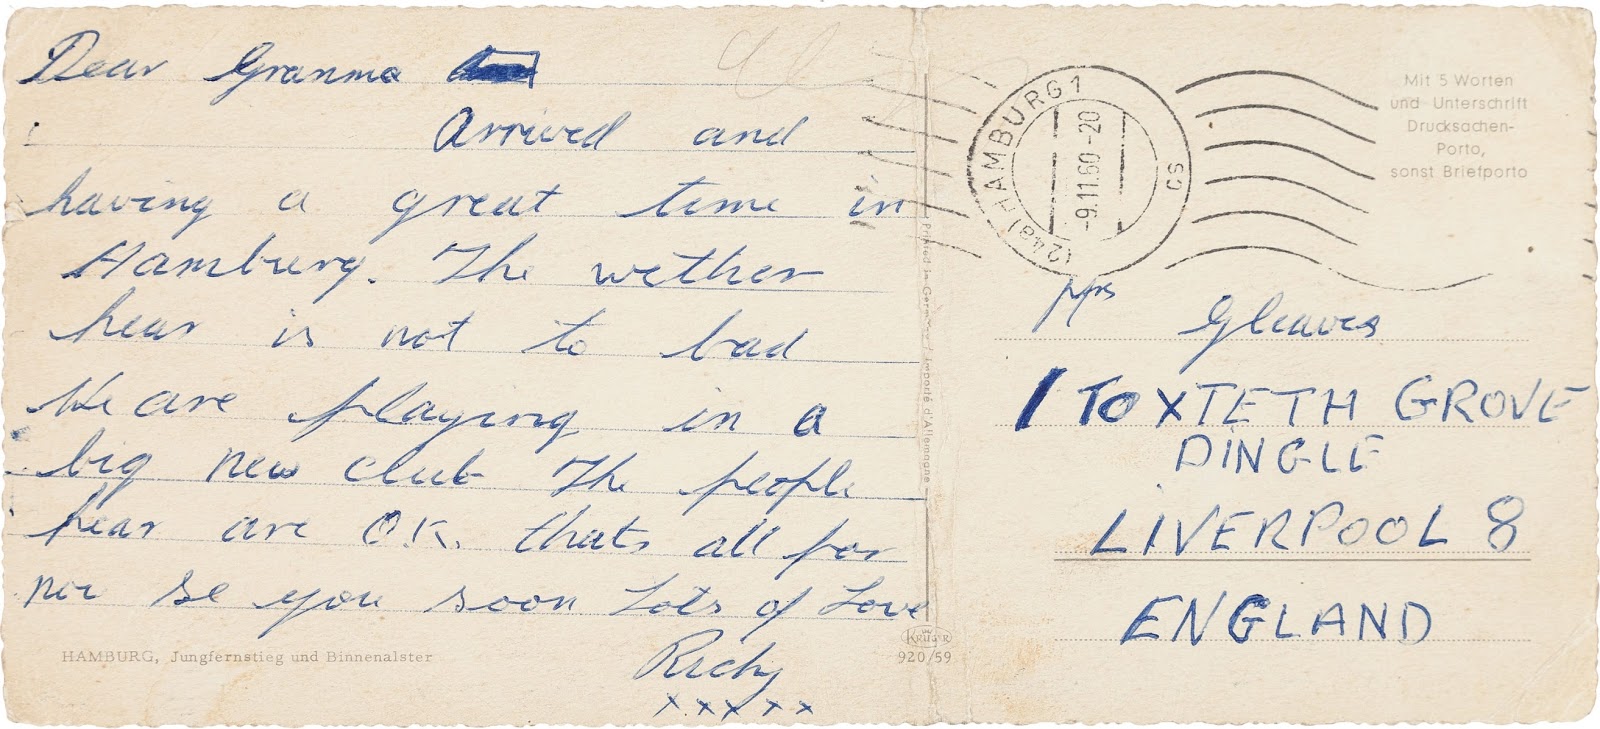 Dear Granma
Arrived and
having a great time in
Hamburg. The wether
hear is not to bad
We are playing in a
big new club The people
hear are O.K. thats all for
now se you soon Lots of Love
Richy
xxxxx
HAMBURG, Jungfernstieg und Binnenalster
KRÜGER
920/59
Printed in Germany - Importé d'Allemagne
(24a) HAMBURG 1
-9.11.60-20
cs
Mit 5 Worten
und Unterschrift
Drucksachen-
Porto,
sonst Briefporto
Mrs
Gleaves
1 TOXTETH GROVE
DINGLE
LIVERPOOL 8
ENGLAND